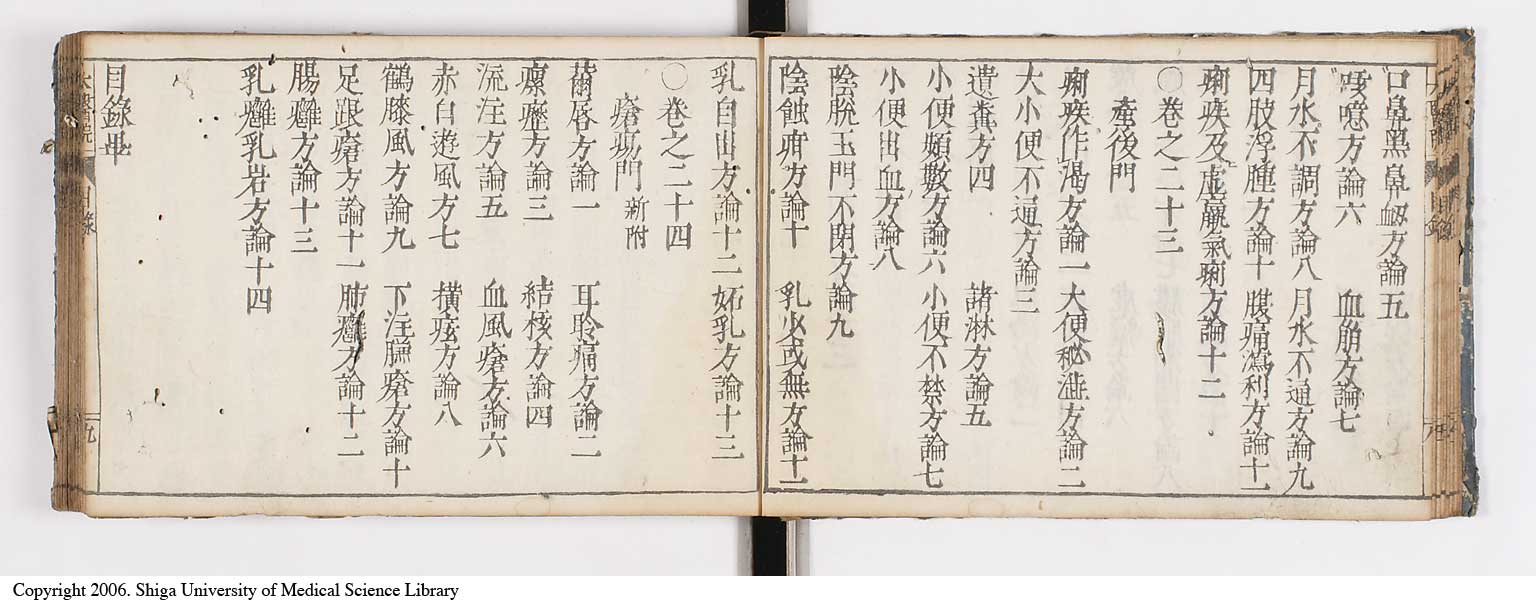 口鼻黑鼻衂方論五
咳噫方論六　血崩方論七
月水不調方論八　月水不通方論九
四肢浮腫方論十　腹痛瀉利方論十一
痢疾及虛羸氣痢方論十二
〇卷之二十三
產後門
痢疾作渴方論一　大便秘澁方論二
大小便不通方論三
遺糞方四　諸淋方論五
小便頻數方論六　小便不禁方論七
小便出血方論八
陰脫玉門不閉方論九
陰蝕瘡方論十　乳少或無方論十一
乳自出方論十二　妬乳方論十三
〇卷之二十四
瘡瘍門　新附
繭唇方論一　耳聆痛方論二
瘰癧方論三　結核方論四
流注方論五　血風瘡方論六
赤白遊風方七　橫痃方論八
鶴膝風方論九　下注臁瘡方論十
足跟瘡方論十一　肺癰方論十二
腸癰方論十三
乳癰乳岩方論十四
目錄畢
目錄
九
Copyright 2006. Shiga University of Medical Science Library